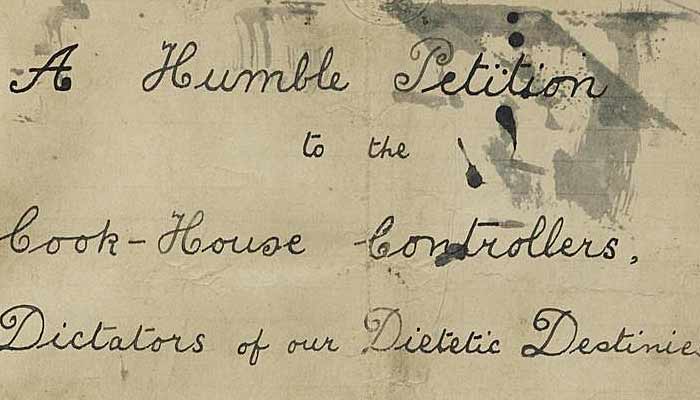 A Humble Petition
to the
Cook-House Controllers,
Dictators of our Dietetic Destinie